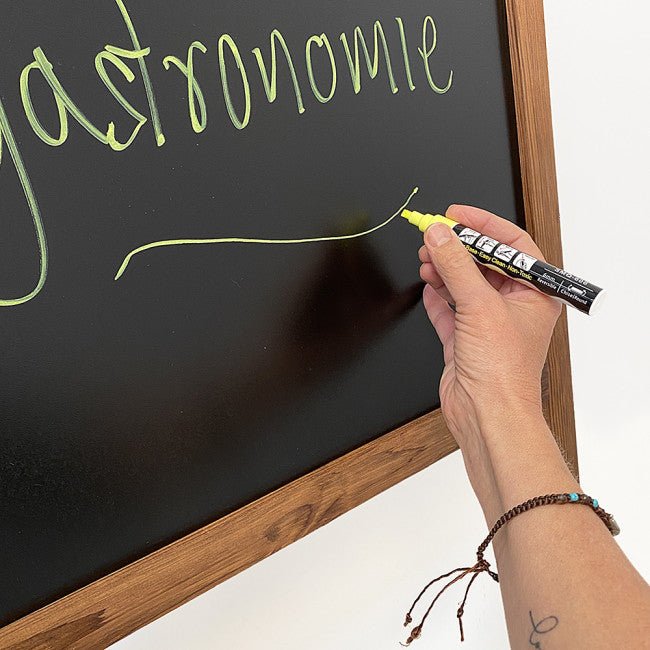 gastronomie
Base-Easy Clean-Non-Toxic
6mm
Reversible | Chisel/Round